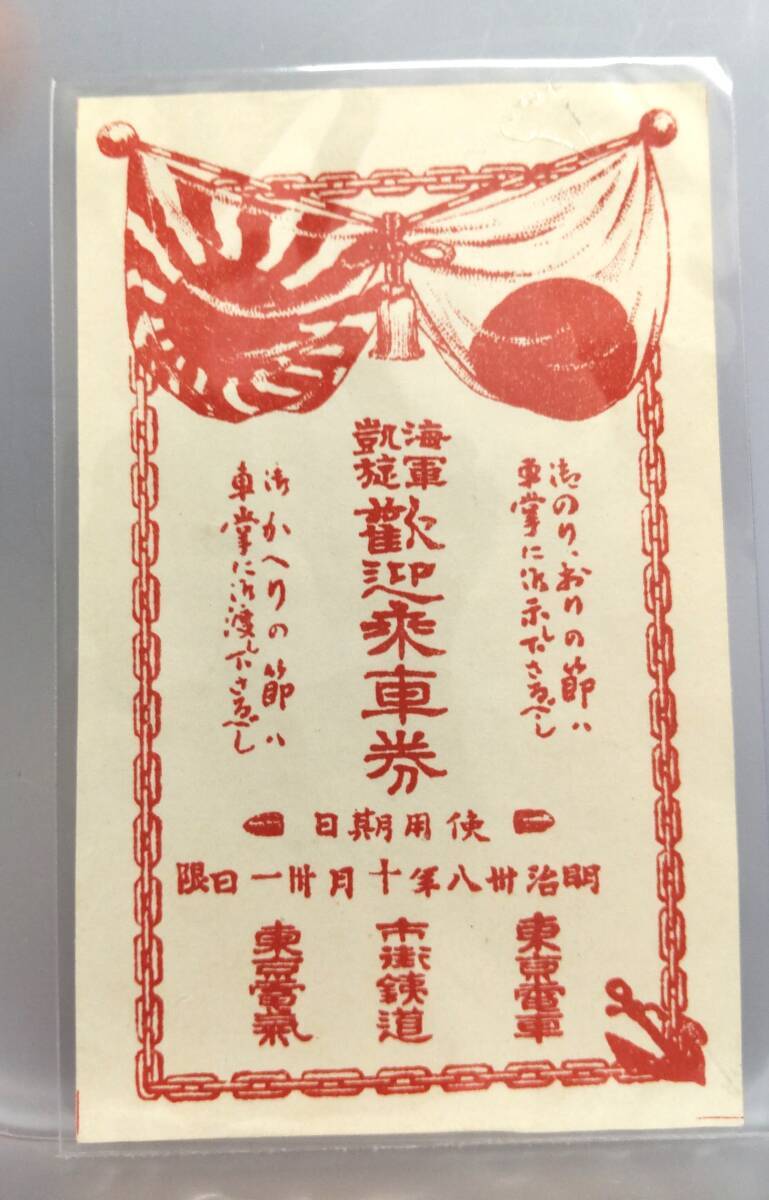 御のり、おりの節ハ
車掌に御示し下さるべし
海軍
凱旋
歡迎乘車券
御かへりの節ハ
車掌に御渡し下さるべし
使用期日
明治卅八年十月卅一日限
東京電車
市街鉄道
東京電氣